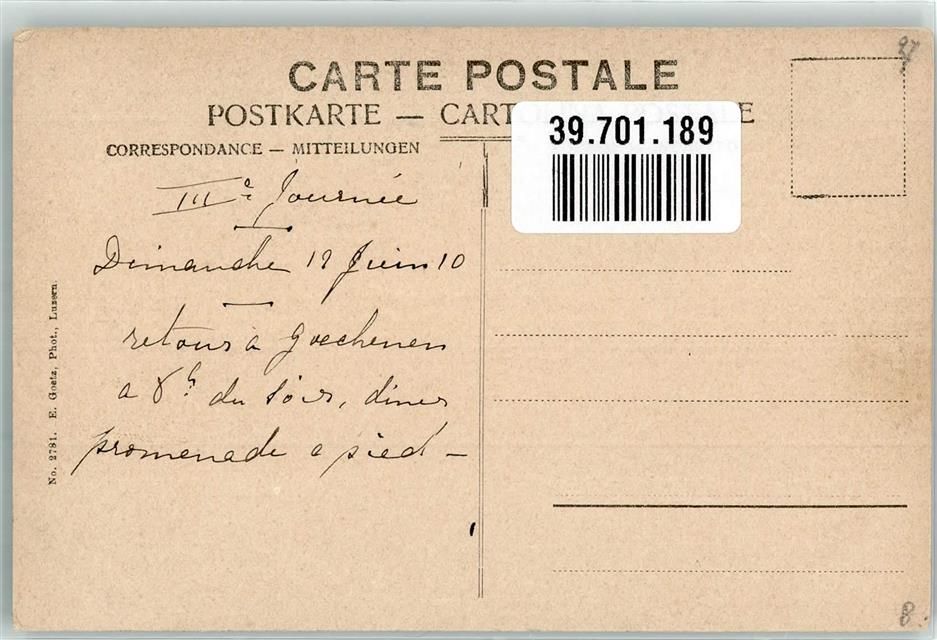 CARTE POSTALE
POSTKARTE — CART
39.701.189
CORRESPONDANCE — MITTEILUNGEN
IIIe Journée
Dimanche 19 Juin 10
retour à Goechenen
a 8h du soir, diner
promenade a pied —
No. 2781. E. Goetz, Phot., Luzern.
27
8